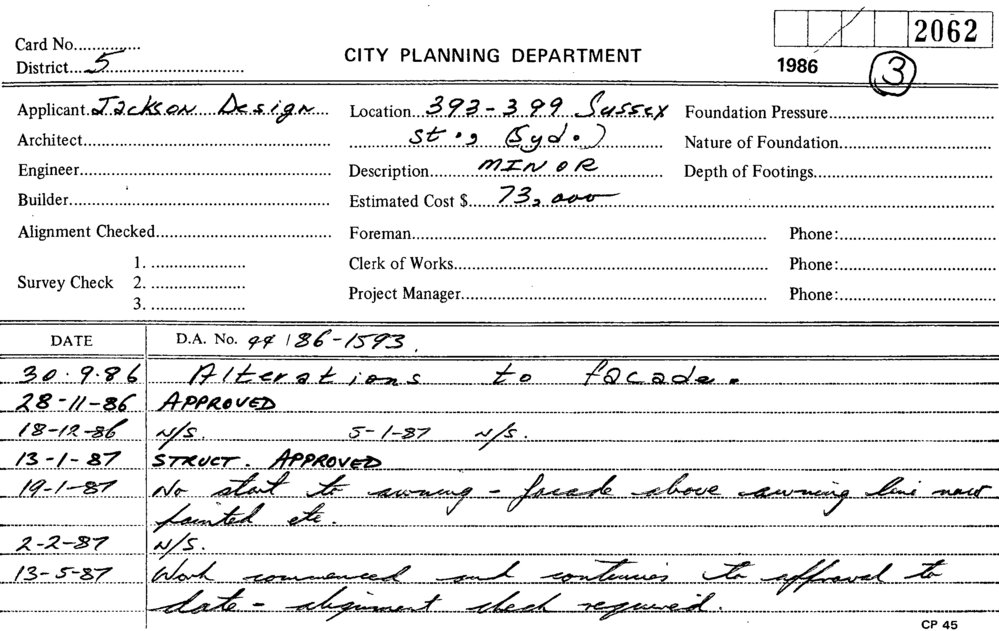 2062
Card No..............
CITY PLANNING DEPARTMENT
District...5
1986
3
Applicant Jackson Design
Location 393-399 Sussex
Foundation Pressure
Architect
St., (Syd.)
Nature of Foundation
Engineer
Description MINOR
Depth of Footings
Builder
Estimated Cost $ 73,000
Alignment Checked
Foreman
Phone:
Survey Check
1.
2.
3.
Clerk of Works
Phone:
Project Manager
Phone:
DATE
D.A. No. 44/86-1593.
30.9.86 Alterations to facade.
28-11-86 APPROVED
18-12-86 N/S. 5-1-87 N/S.
13-1-87 STRUCT. APPROVED
19-1-87 No start to awning - facade above awning line now
painted etc.
2-2-87 N/S.
13-5-87 Work commenced and continues to approval to
date - alignment check required.
CP 45